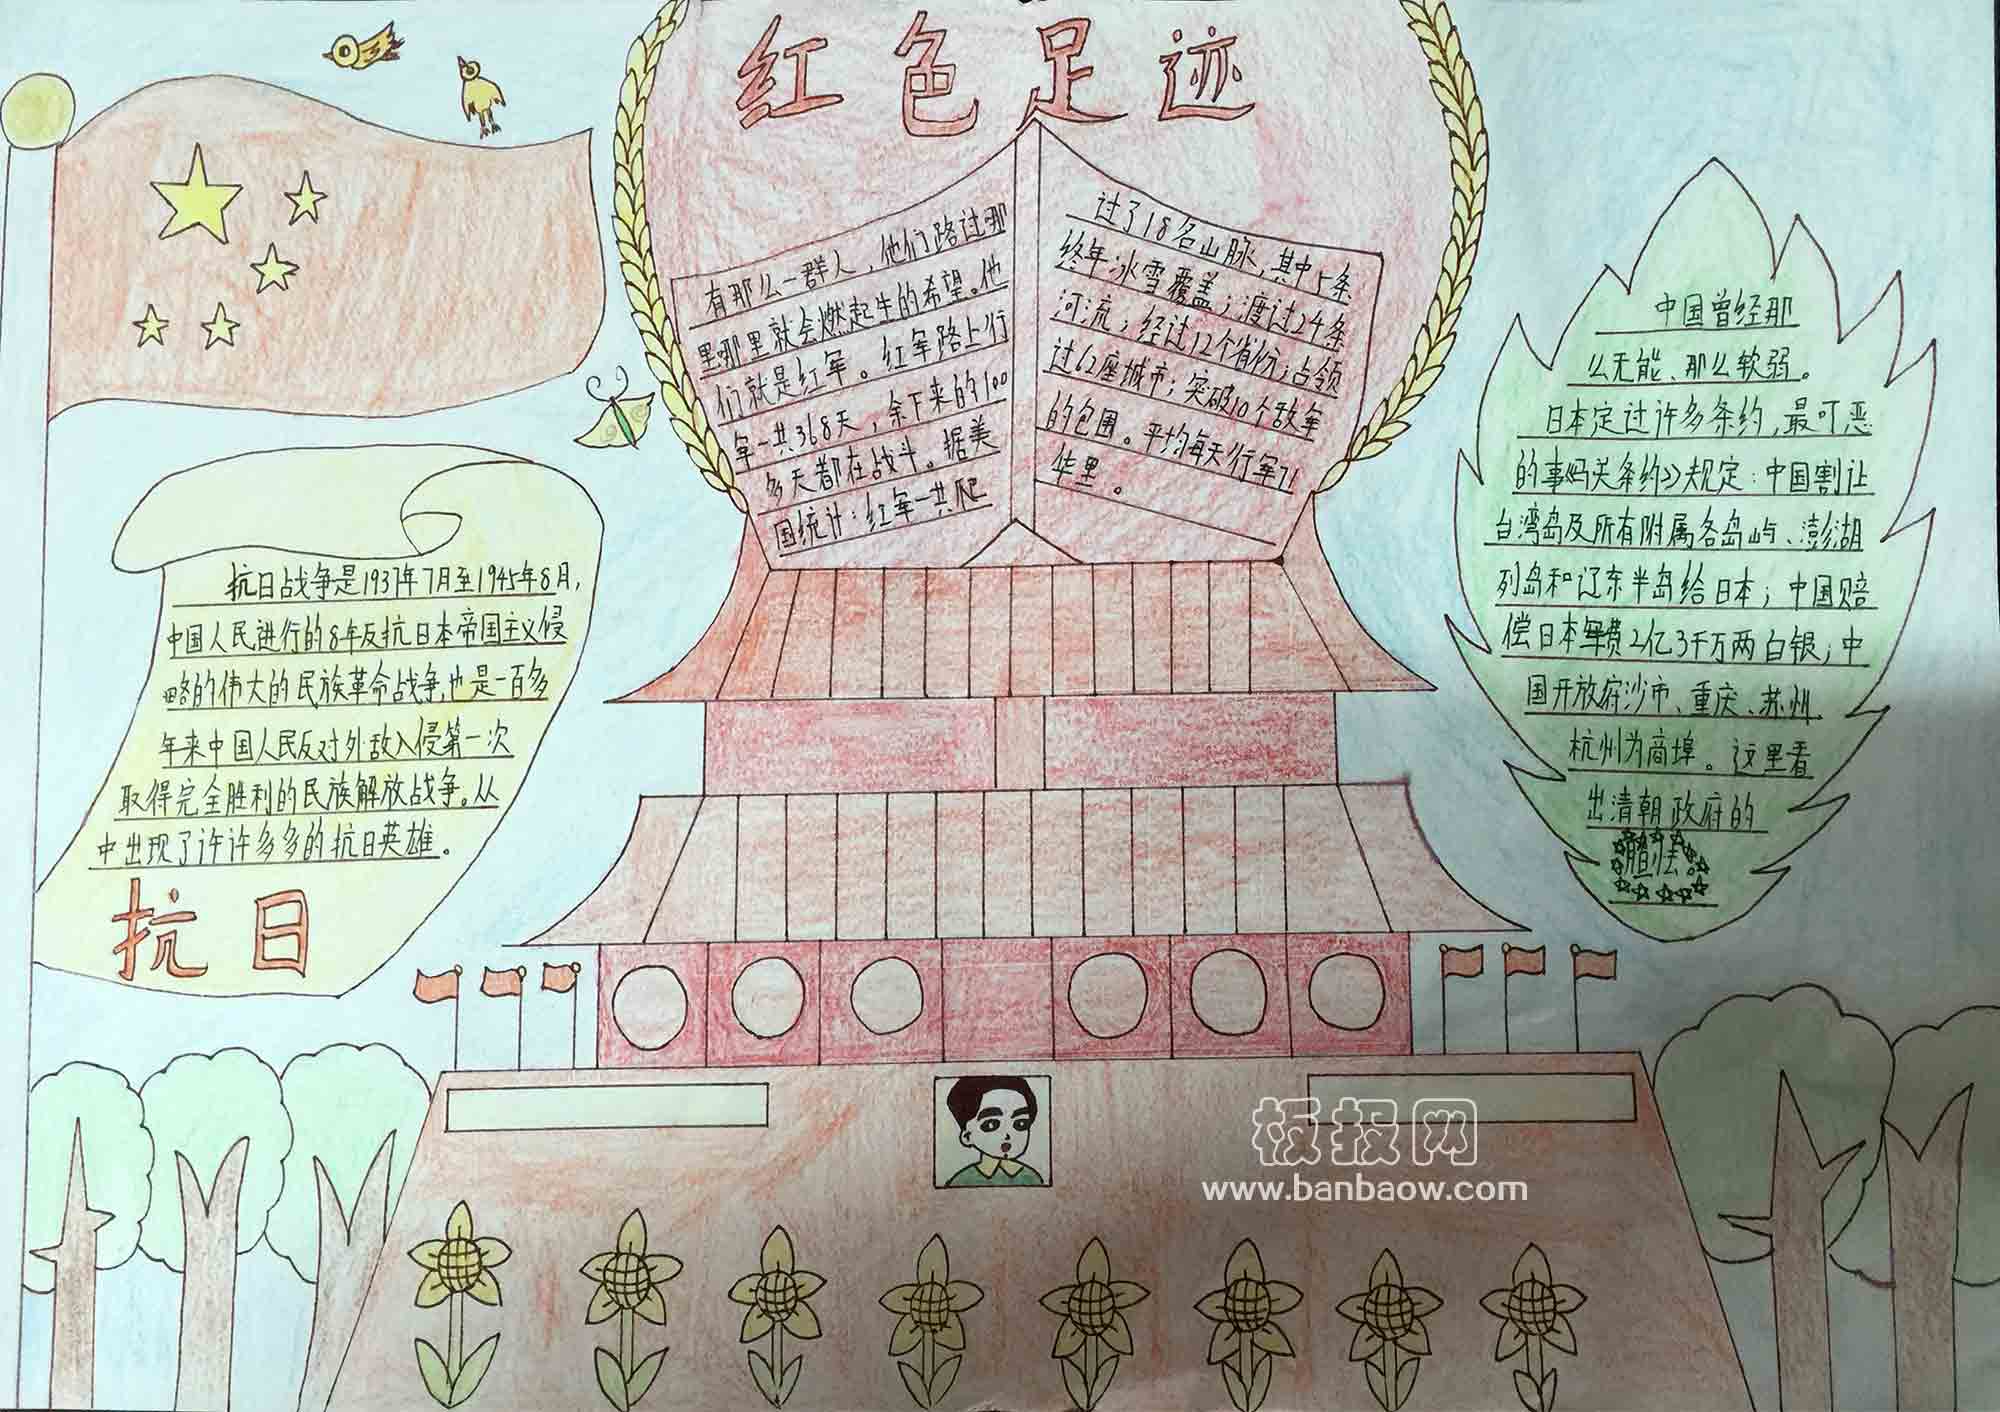 红色足迹
有那么一群人，他们路过哪
里哪里就会燃起生的希望。他
们就是红军。红军路上行
军一共368天，余下来的100
多天都在战斗。据美
国统计：红军一共爬
过了18名山脉，其中5条
终年冰雪覆盖；渡过24条
河流；经过12个省份；占领
过62座城市；突破10个敌军
的包围。平均每天行军71
华里。
抗日战争是1937年7月至1945年8月，
中国人民进行的8年反抗日本帝国主义侵
略的伟大的民族革命战争，也是一百多
年来中国人民反对外敌入侵第一次
取得完全胜利的民族解放战争。从
中出现了许许多多的抗日英雄。
抗日
中国曾经那
么无能、那么软弱。
日本定过许多条约，最可恶
的事《马关条约》规定：中国割让
台湾岛及所有附属各岛屿、澎湖
列岛和辽东半岛给日本；中国赔
偿日本军费2亿3千万两白银；中
国开放府沙市、重庆、苏州
杭州为商埠。这里看
出清朝政府的
板报网
www.banbaow.com